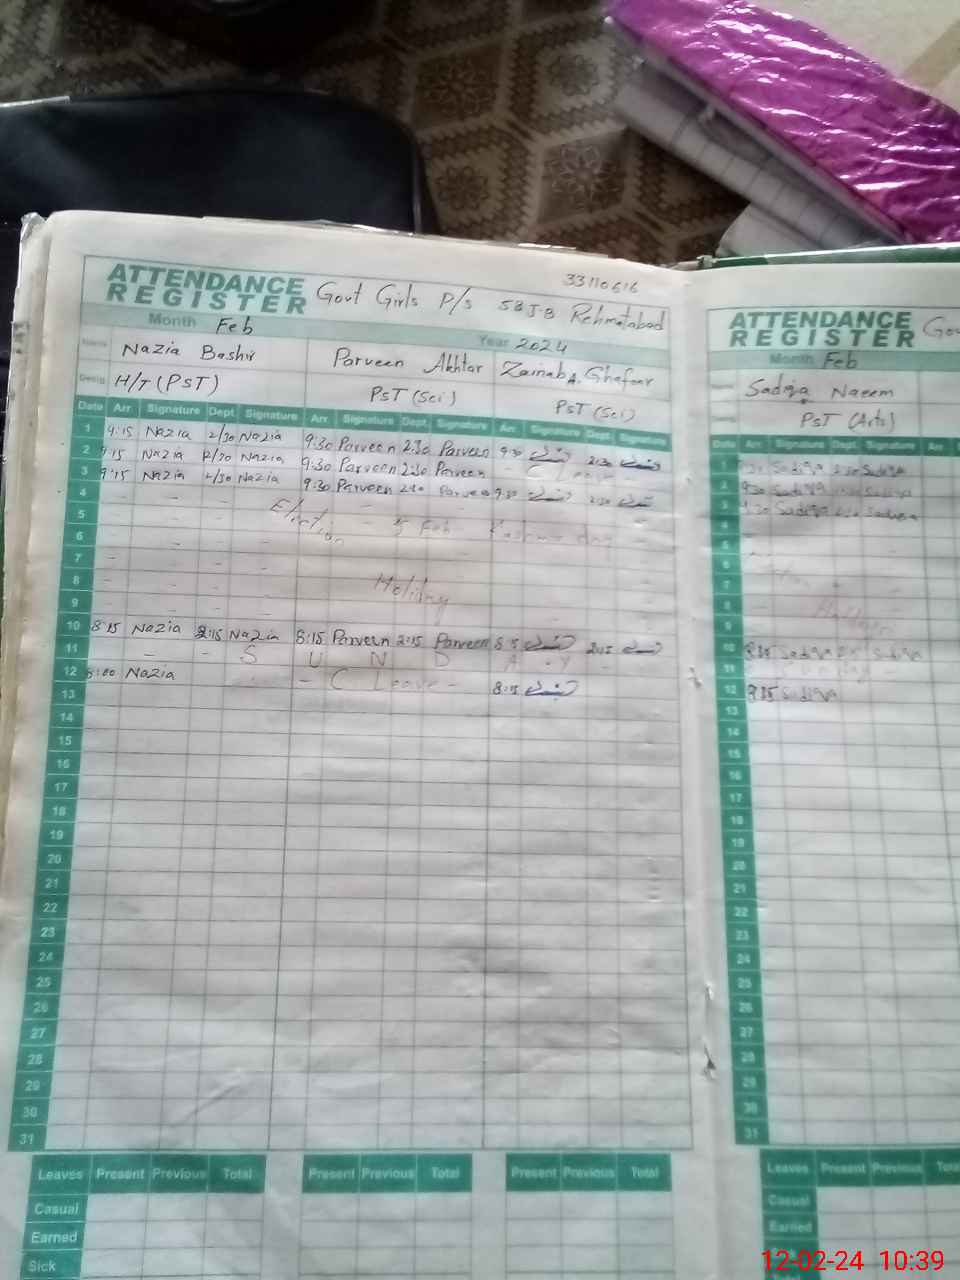 33110616
ATTENDANCE REGISTER Govt Girls P/s 58 J.B Rehmatabad
Month Feb Year 2024
Name Nazia Bashir Parveen Akhtar Zainab A. Ghafoor
Desig H/T (PST) PST (Sci) PST (Sci)
Date Arr Signature Dept. Signature Arr Signature Dept. Signature Arr Signature Dept. Signature
1 9:15 Nazia 2/30 Nazia 9:30 Parveen 2:30 Parveen 9:30 2:30
2 9:15 Nazia 2/30 Nazia 9:30 Parveen 2:30 Parveen - C Leave -
3 9:15 Nazia 2/30 Nazia 9:30 Parveen 2:30 Parveen 9:30 2:30
4
5 5 Feb Kashmir day
6
7
8 Holiday
9
10 8:15 Nazia 2:15 Nazia 8:15 Parveen 2:15 Parveen 8:15 2:15
11 - - S U N D A Y
12 8:00 Nazia - C Leave - 8:15
13
14
15
16
17
18
19
20
21
22
23
24
25
26
27
28
29
30
31
Leaves Present Previous Total Present Previous Total Present Previous Total
Casual
Earned
Sick
ATTENDANCE REGISTER Gov
Month Feb
Sadiqa Naeem
PST (Arts)
Date Arr Signature Dept. Signature Arr
1 9:30 Sadiqa 2:30 Sadiqa
2 9:30 Sadiqa Sadiqa
3 9:30 Sadiqa Sadiqa
4
5
6
7
8 Holiday
9
10 8:15 Sadiqa Sadiqa
11
12 8:15 Sadiqa
13
14
15
16
17
18
19
20
21
22
23
24
25
26
27
28
29
30
31
Leaves Present Previous Total
Casual
Earned
12-02-24 10:39